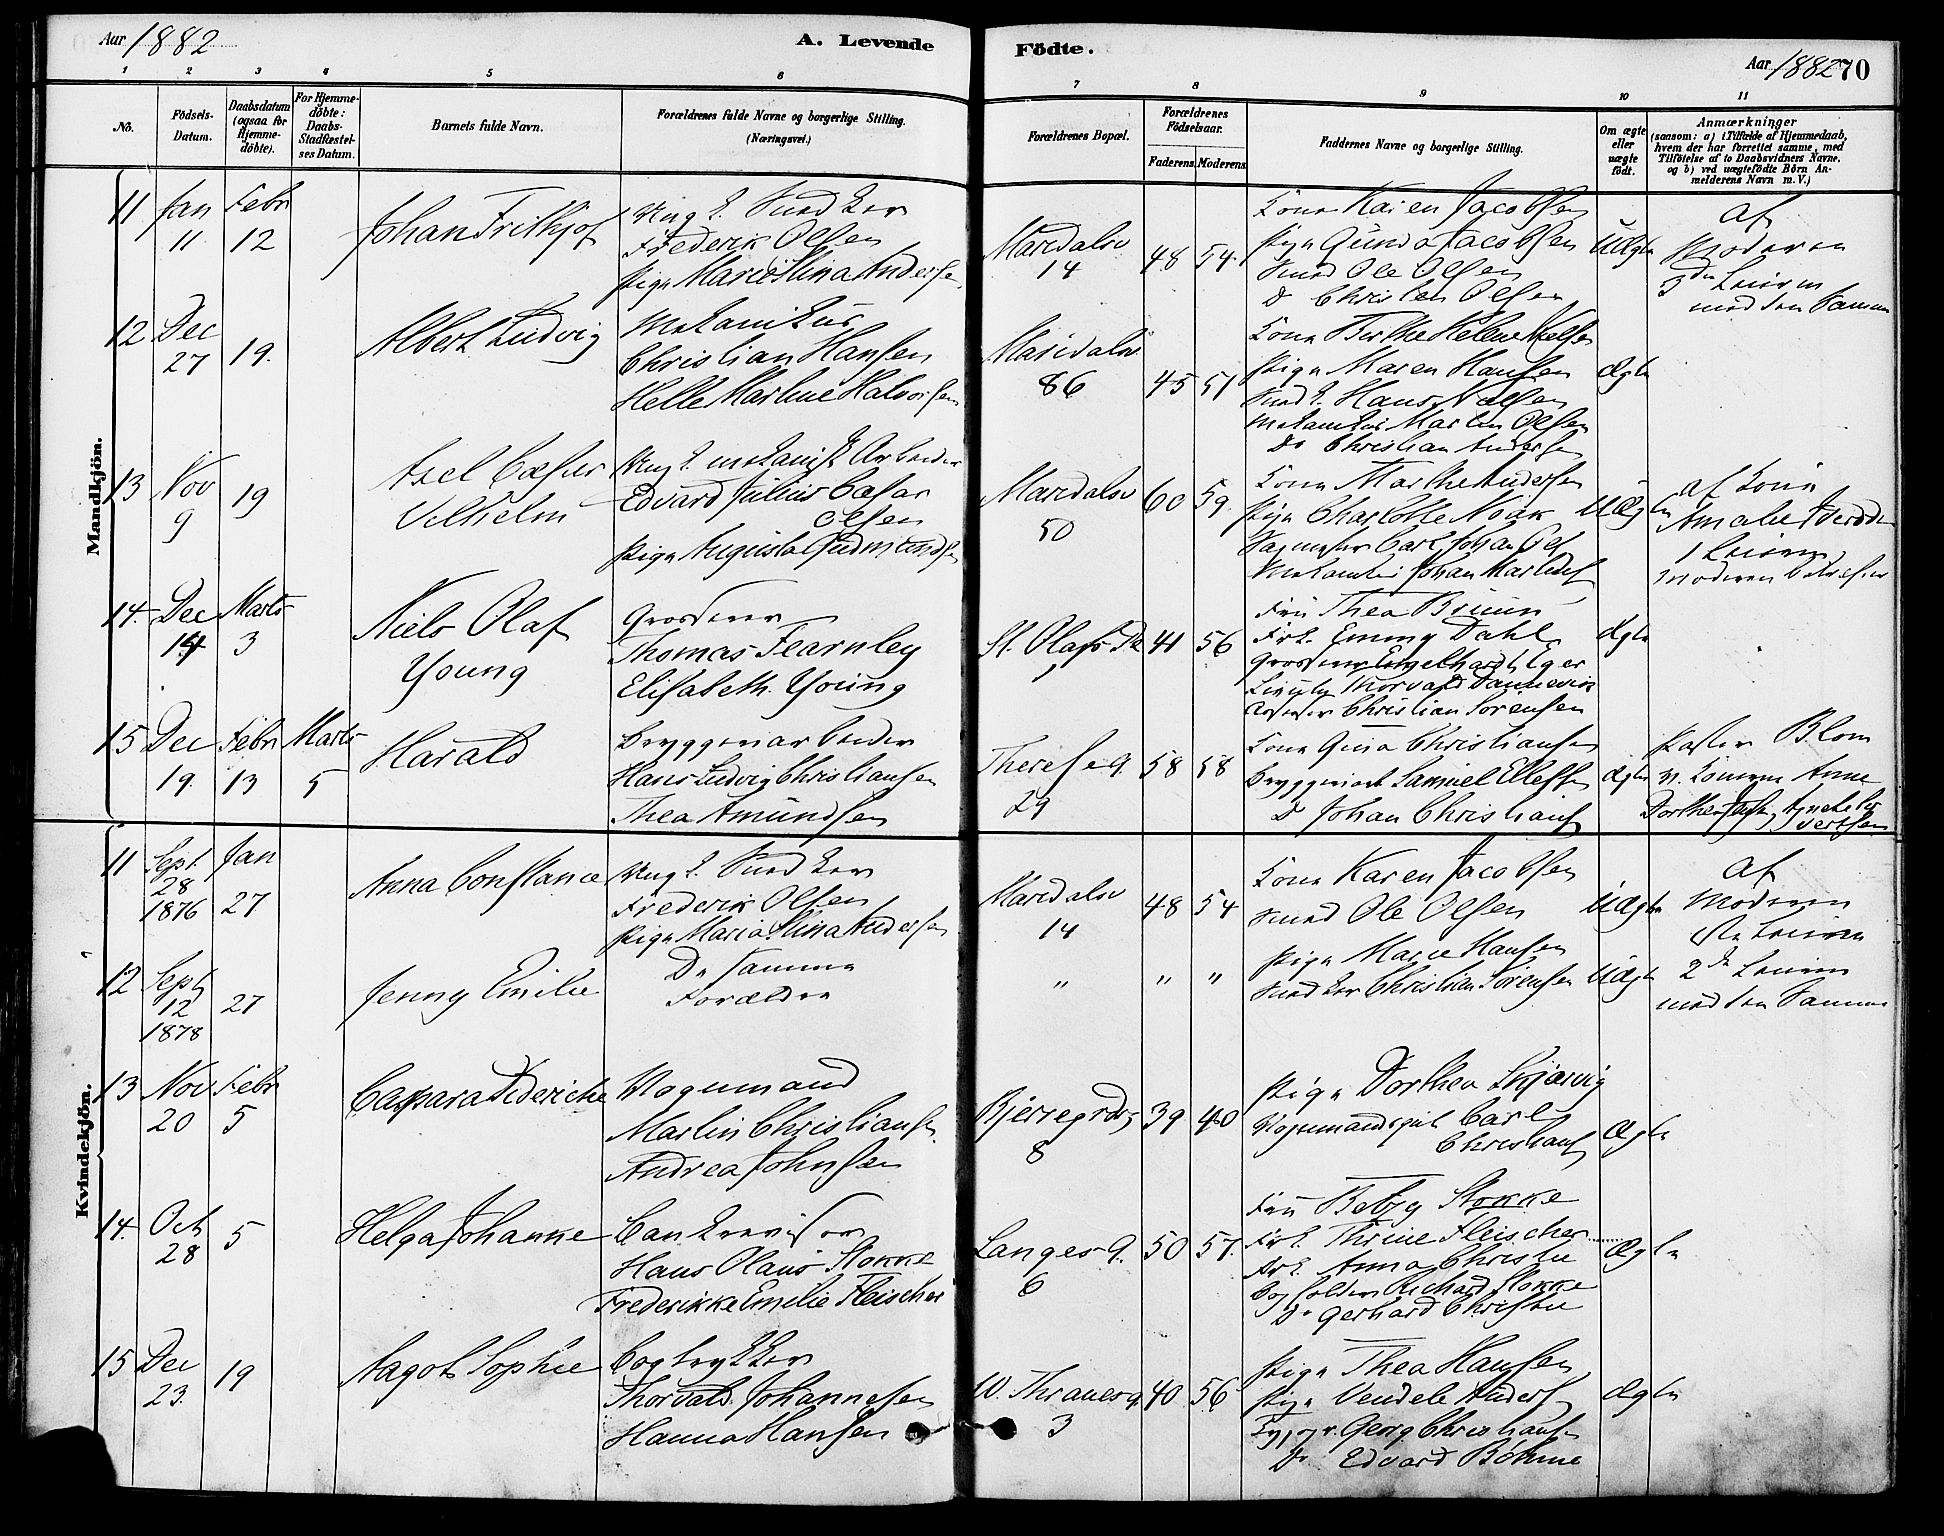 Aar 1882
A. Levende
Födte.
Aar 1882
70
1 2 3 4 5 6 7 8 9 10 11
No.
Födsels-
Datum.
Daabsdatum
(ogsaa for
Hjemme-
döbte).
For Hjemme-
döbte:
Daabs-
Stadfæstel-
ses Datum.
Barnets fulde Navn.
Forældrenes fulde Navne og borgerlige Stilling.
(Næringsvei.)
Forældrenes Bopæl.
Forældrenes
Födselsaar.
Faderens. Moderens.
Faddernes Navne og borgerlige Stilling.
Om ægte
eller
uægte
födt.
Anmærkninger
(saasom: a) i Tilfælde af Hjemmedaab,
hvem der har forrettet samme, med
Tilföielse af to Daabsvidners Navne.
og b) ved uægtefödte Börn An-
melderens Navn m. V.)
Mandkjön.
11 Jan 11 Febr 12
Johan Frithjof
Ung k. Snedker
Frederik Olsen
Pige Marie Mina Anderse
Maridalsv
14
48 54
Kone Karen Jacobsen
Pige Gunda Jacobsen
Smed Ole Olsen
Do Christen Olsen
Uægte
af
Moderen
3die Leierm
med den Samme
12 Dec 27 19.
Albert Ludvig
Mekanikus
Christian Hansen
Helle Marline Halvorsen
Maridalsv
86
45 51
Kone Berthe Helene
Pige Maren Hansen
Smed k. Hans
Mekanikus Martin Olsen
Do Christian Andersen
Ægte
13 Nov 9 19
Axel Cæsar
Vilhelm
Ung k. mekanisk Arbeider
Edvard Julius Cæsar
Olsen
Pige Augusta Gudmundsen
Maridalsv
50
60 59
Kone Marthe Andersen
Pige Charlotte Noak
Carl Johan
Johan
Uægte
af Kone
Amalie
1 Leierm,
Moderen
14. Dec 14 Marts 3
Niels Olaf
Young
Grosserer
Thomas Fearnley
Elisabeth Young
St. Olafs Pl
1
41 56
Fru Thea Bruun
Frk. Emmy Dahl
Grosserer Engelhardt Eger
Thorvald Dannevig
Christian Sorensen
Ægte
15 Dec 19. Febr 13 Marts 5
Harald
Bryggeriarbeider
Hans Ludvig Christiansen
Thea Amundsen
Therese g.
29
58 58
Kone Gina Christianse
Bryggeriarb Samuel Ellefse
D Johan Christians
Ægte
Pastor Blom
v. Konerne Anne
Kvindekjön.
11 Sept 28 1876 Jan 27
Anna Constance
Ung k. Snedker
Frederik Olsen
Pige Maria Mina Andersen
Maridalsv
14
48 54
Kone Karen Jacobsen
Smed Ole Olsen
Uægte
af
Moderen
1ste Leierm
12 Sept 12 1878 27
Jenny Emilie
De samme
Forældre
" " "
Pige Marie Hansen
Snedker Christian Sörensen
Uægte
2den Leierm
med den Samme
13 Nov 20 Febr 5
Caspara Dideriche
Vognmand
Martin Christiansen
Andrea Johnsen
Bjerregrdsg
8
39 40
Pige Dorthea Skjærvig
Vognmandsgut Carl
Christians
Ægte
14. Oct 28 5
Helga Johanne
Bankrevisor
Hans Olaus Stokke
Frederikke Emilie Fleischer
Langes g.
6
50 57.
Fru Betzy Stokke
Frk. Thrine Fleischer
Frk. Anna Christie
Bogholder Richard Stokke
Do Gerhard Christie
Ægte
15 Dec 23. 19
Aagot Sophie
Bogtrykker
Thorvald Johannesen
Hanna Hansen
W. Thranes g.
3
40 56
Pige Thea Hansen
Pige Vendele Anders
Typogr. Georg Christians
Do Edvard Böhme
Ægte